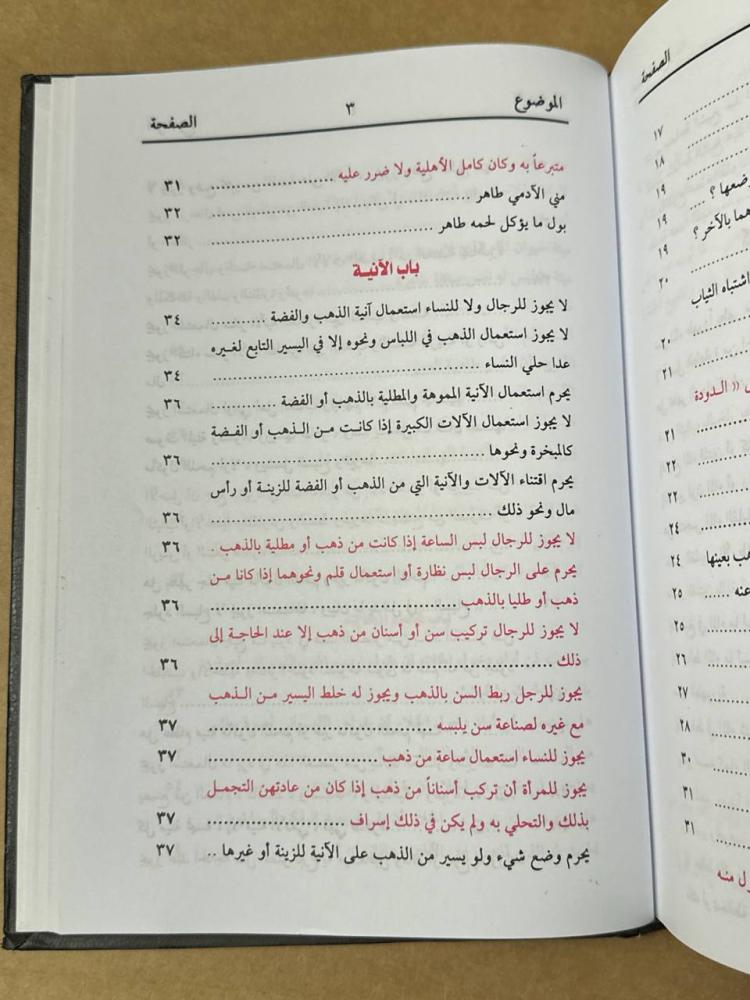 الموضوع ٣ الصفحة
متبرعاً به وكان كامل الأهلية ولا ضرر عليه .......... ٣١
مني الآدمي طاهر .......... ٣٢
بول ما يؤكل لحمه طاهر .......... ٣٢
باب الآنيـة
لا يجوز للرجال ولا للنساء استعمال آنية الذهب والفضة .......... ٣٤
لا يجوز استعمال الذهب في اللباس ونحوه إلا في اليسير التابع لغيره
عدا حلي النساء .......... ٣٤
يحرم استعمال الآنية المموهة والمطلية بالذهب أو الفضة .......... ٣٦
لا يجوز استعمال الآلات الكبيرة إذا كانت من الذهب أو الفضة
كالمبخرة ونحوها .......... ٣٦
يحرم اقتناء الآلات والآنية التي من الذهب أو الفضة للزينة أو رأس
مال ونحو ذلك .......... ٣٦
لا يجوز للرجال لبس الساعة إذا كانت من ذهب أو مطلية بالذهب . ٣٦
يحرم على الرجال لبس نظارة أو استعمال قلم ونحوهما إذا كانا من
ذهب أو طليا بالذهب .......... ٣٦
لا يجوز للرجال تركيب سن أو أسنان من ذهب إلا عند الحاجة إلى
ذلك .......... ٣٦
يجوز للرجل ربط السن بالذهب ويجوز له خلط اليسير من الذهب
مع غيره لصناعة سن يلبسه .......... ٣٧
يجوز للنساء استعمال ساعة من ذهب .......... ٣٧
يجوز للمرأة أن تركب أسناناً من ذهب إذا كان من عادتهن التجمل
بذلك والتحلي به ولم يكن في ذلك إسراف .......... ٣٧
يحرم وضع شيء ولو يسير من الذهب على الآنية للزينة أو غيرها .. ٣٧
الصفحة
١٧
١٨
وضعها ؟ .... ١٩
١٩
هما بالآخر ؟ ١٩
٢٠
اشتباه الثياب
٢٠
٢١
الدودة
٢١
٢٢
٢٢
٢٤
هب بعينها ٢٤
عنه ...... ٢٥
٢٥
٢٦
٢٧
٢٨
٣٠
٣١
٣١
منه